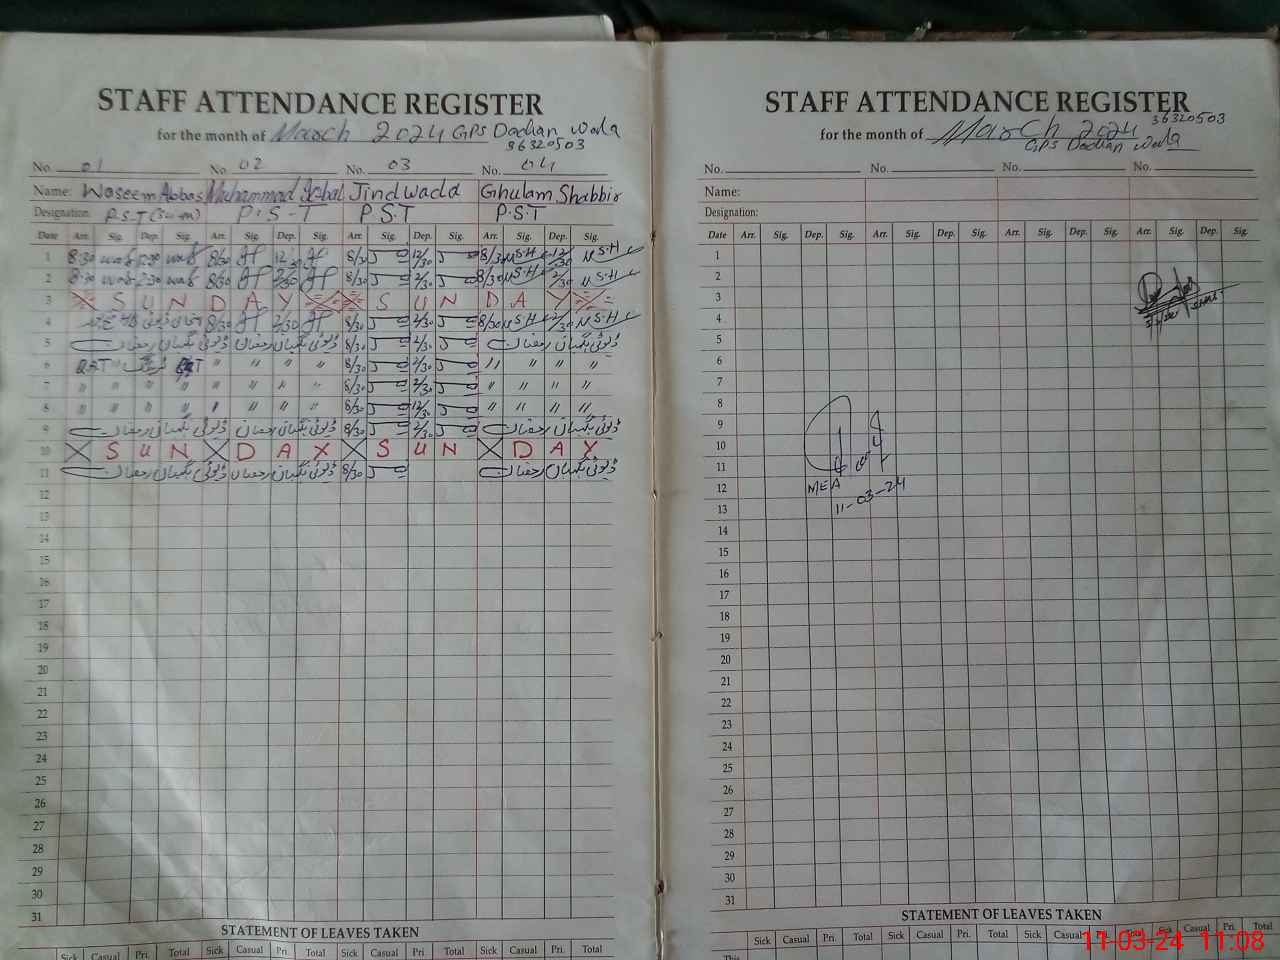 STAFF ATTENDANCE REGISTER
for the month of March 2024 GPS Dadhan Wala
36320503
No. 01 No. 02 No. 03 No. 04
Name: Waseem Abbas Muhammad Iqbal Jindwada Ghulam Shabbir
Designation: P.S.T P.S.T P.S.T P.S.T
Date Arr. Sig. Dep. Sig. Arr. Sig. Dep. Sig. Arr. Sig. Dep. Sig. Arr. Sig. Dep. Sig.
1 8:30 12:30 8/30 12/30 8/30 12/30 8/30 12/30
2 8:30 2:30 8/30 2/30 8/30 2/30 8/30 2/30
3 S U N D A Y S U N D A Y
4 8/30 2/30 8/30 2/30 8/30 2/30
5 ڈیوٹی نگہبان رمضان ڈیوٹی نگہبان رمضان 8/30 2/30 ڈیوٹی نگہبان رمضان
6 " " " " 8/30 2/30 " " " "
7 " " " " " " " " 8/30 2/30 " " " "
8 " " " " " " " " 8/30 12/30 " " " "
9 ڈیوٹی نگہبان رمضان ڈیوٹی نگہبان رمضان 8/30 2/30 ڈیوٹی نگہبان رمضان
10 X S U N X D A X X S U N X D A Y
11 ڈیوٹی نگہبان رمضان ڈیوٹی نگہبان رمضان 8/30 ڈیوٹی نگہبان رمضان
12
13
14
15
16
17
18
19
20
21
22
23
24
25
26
27
28
29
30
31
STATEMENT OF LEAVES TAKEN
Sick Casual Pri. Total Sick Casual Pri. Total Sick Casual Pri. Total Sick Casual Pri. Total
STAFF ATTENDANCE REGISTER
36320503
for the month of March 2024
GPS Dadhan Wala
No. No. No. No.
Name:
Designation:
Date Arr. Sig. Dep. Sig. Arr. Sig. Dep. Sig. Arr. Sig. Dep. Sig. Arr. Sig. Dep. Sig.
1
2
3
4
5
6
7
8
9
10
11
12 MEA
13 11-03-24
14
15
16
17
18
19
20
21
22
23
24
25
26
27
28
29
30
31
STATEMENT OF LEAVES TAKEN
Sick Casual Pri. Total Sick Casual Pri. Total Sick Casual Pri. Total Sick Casual Pri. Total
This
11-03-24 11:08